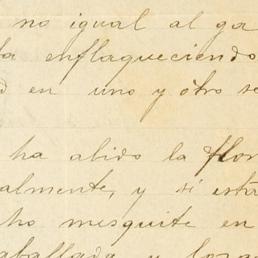 no igual al ga
la enflaqueciendo
en uno y otro se
ha abido la flor
almente, y si esta
ho mesquite en
aballada y